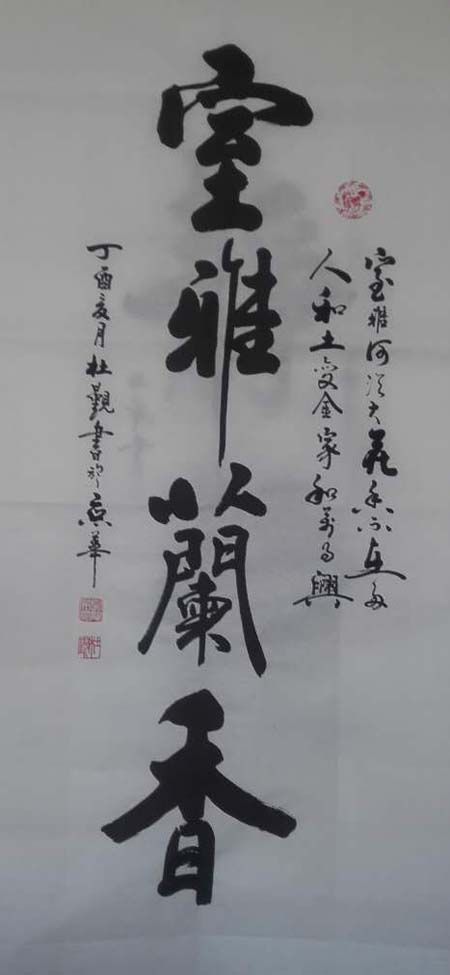 室雅蘭香
室雅何須大花香不在多
人和土變金家和萬事興
丁酉亥月杜觀書於京華